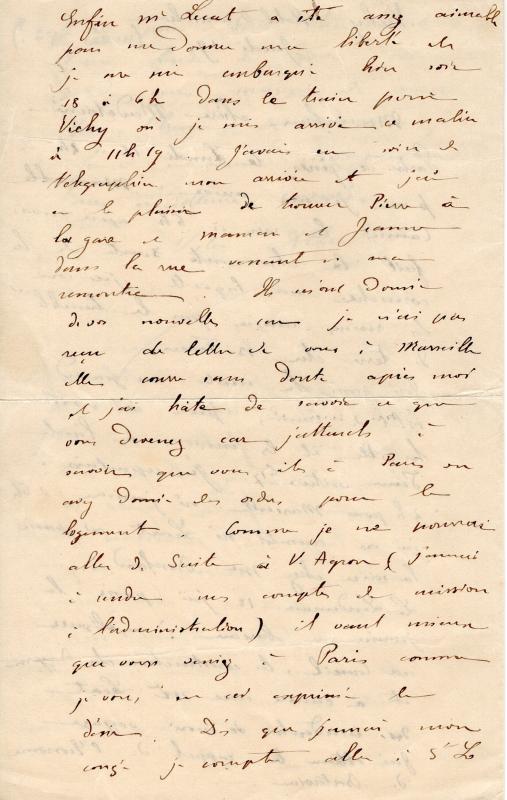 Enfin Mr Lucat a été assez aimable
pour me donner ma liberté et
je me suis embarqué hier soir
18 à 6h dans le train pour
Vichy où je suis arrivé ce matin
à 11h19. J'avais eu soin de
télégraphier mon arrivée et j'ai
eu le plaisir de trouver Pierre à
la gare et maman et Jeanne
dans la rue venant à ma
rencontre. Ils m'ont donné
de vos nouvelles car je n'ai pas
reçu de lettre de vous à Marseille
elle court sans doute après moi
et j'ai hâte de savoir ce que
vous devenez car j'attends à
savoir que vous êtes à Paris ou
avez donné des ordres pour le
logement. Comme je ne pourrai
aller de suite à V. Agron (j'aurai
à rendre mes comptes de mission
à l'administration) il vaut mieux
que vous veniez à Paris comme
je vous en ai exprimé le
désir. Dès que j'aurai mon
congé je compte aller à St Lo